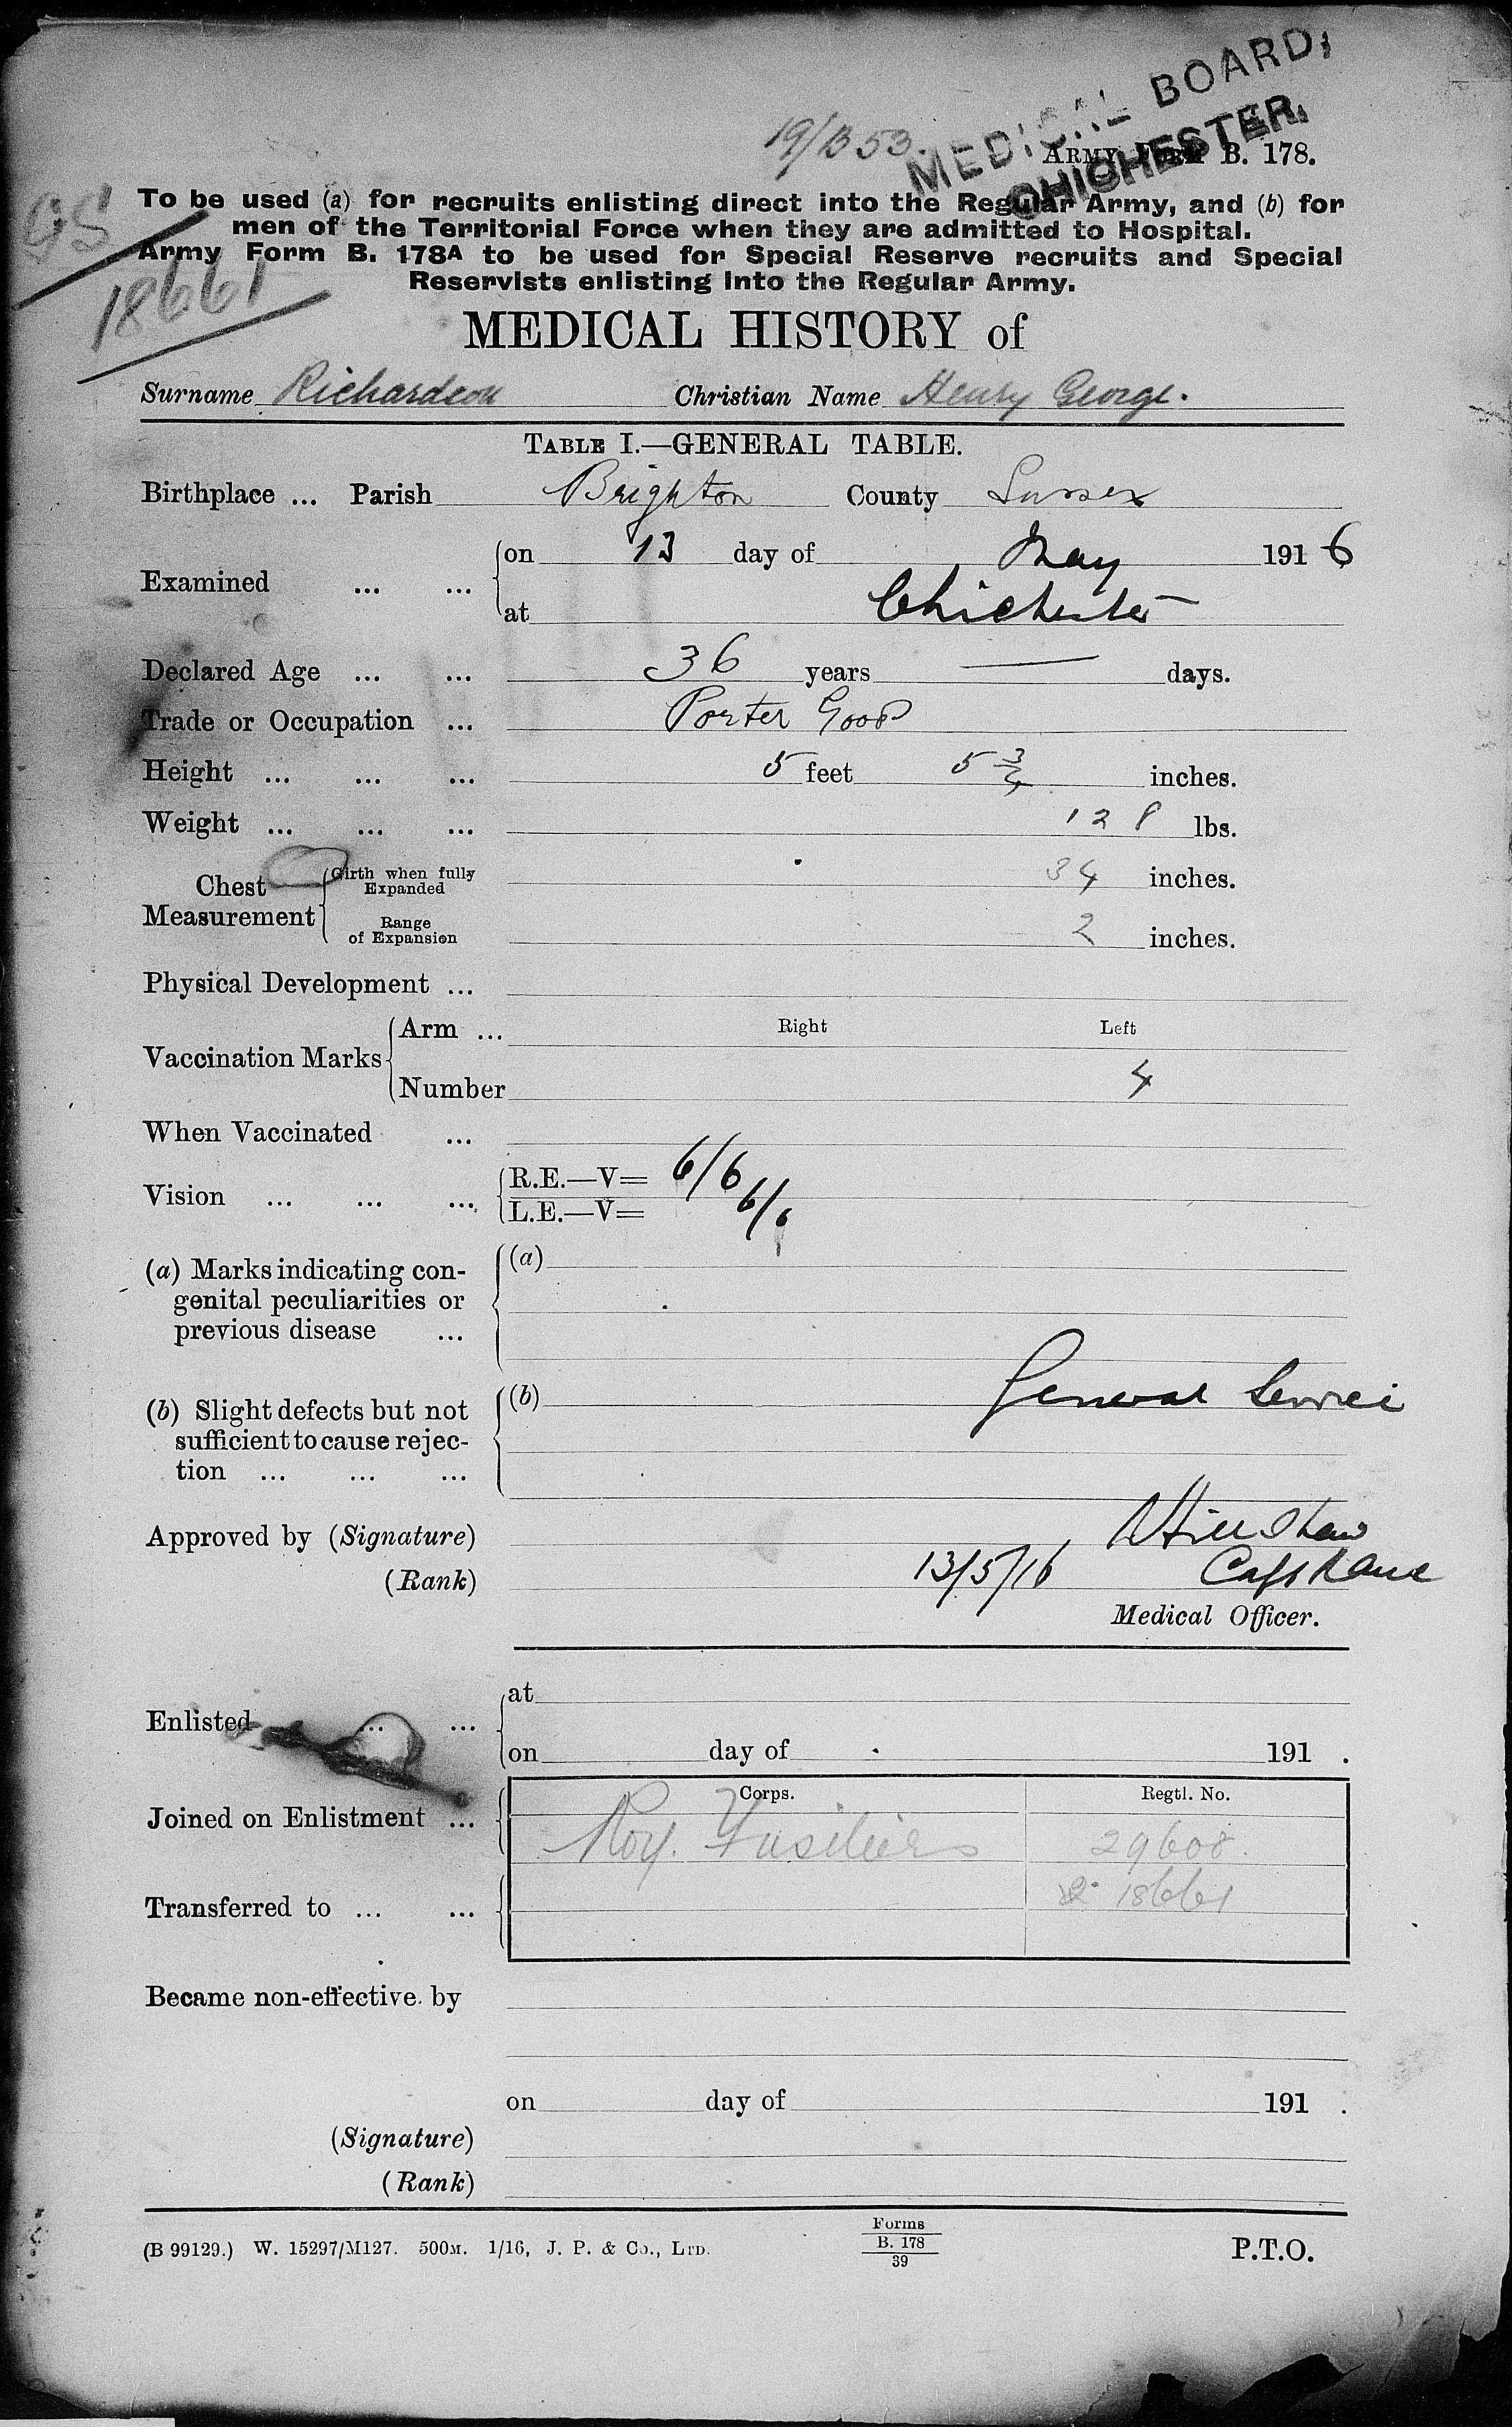 MEDICAL BOARD,
CHICHESTER.
19/B 53.
ARMY FORM B. 178.
GS
18661
To be used (a) for recruits enlisting direct into the Regular Army, and (b) for
men of the Territorial Force when they are admitted to Hospital.
Army Form B. 178A to be used for Special Reserve recruits and Special
Reservists enlisting into the Regular Army.
MEDICAL HISTORY of
Surname Richardson Christian Name Henry George.
TABLE I.—GENERAL TABLE.
Birthplace ... Parish Brighton County Sussex
Examined ... ... on 13 day of May 1916
at Chichester
Declared Age ... ... 36 years — days.
Trade or Occupation ... Porter Good
Height ... ... ... 5 feet 5 3/4 inches.
Weight ... ... ... 128 lbs.
Chest Measurement
Girth when fully Expanded 34 inches.
Range of Expansion 2 inches.
Physical Development ...
Vaccination Marks
Arm ... Right Left
Number 4
When Vaccinated ...
Vision ... ... ... R.E.—V= 6/6
L.E.—V= 6/6
(a) Marks indicating con- (a)
genital peculiarities or
previous disease ...
(b) Slight defects but not (b) General Service
sufficient to cause rejec-
tion ... ... ...
Approved by (Signature)
(Rank) 13/5/16 Capt
Medical Officer.
Enlisted ... ... at
on day of 191 .
Corps. Regtl. No.
Joined on Enlistment ... Roy. Fusiliers 29608.
Transferred to ... ... 18661
Became non-effective by
on day of 191 .
(Signature)
(Rank)
(B 99129.) W. 15297/M127. 500M. 1/16, J. P. & Co., LTD.
Forms
B. 178
39
P.T.O.